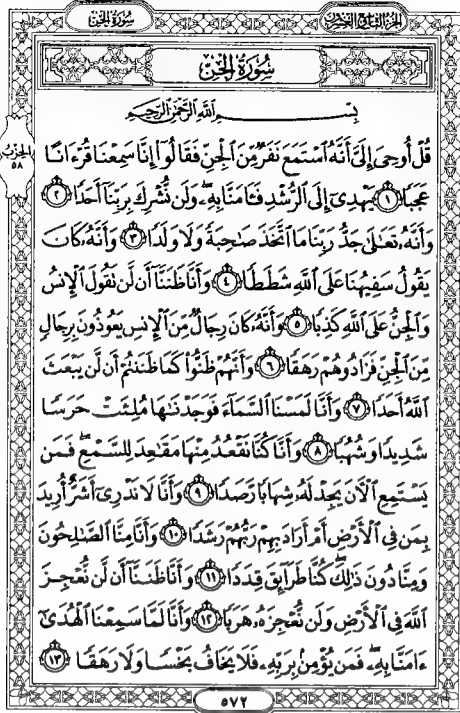 الجزء التاسع والعشرون سُورَةُ الجِنّ
سُورَةُ الجِنّ
بِسْمِ اللَّهِ الرَّحْمَٰنِ الرَّحِيمِ
قُلْ أُوحِيَ إِلَيَّ أَنَّهُ ٱسْتَمَعَ نَفَرٌ مِّنَ ٱلْجِنِّ فَقَالُوٓا۟ إِنَّا سَمِعْنَا قُرْءَانًا
الحزب ٥٨
عَجَبًا ١ يَهْدِىٓ إِلَى ٱلرُّشْدِ فَـَٔامَنَّا بِهِۦ ۖ وَلَن نُّشْرِكَ بِرَبِّنَآ أَحَدًا ٢
وَأَنَّهُۥ تَعَٰلَىٰ جَدُّ رَبِّنَا مَا ٱتَّخَذَ صَٰحِبَةً وَلَا وَلَدًا ٣ وَأَنَّهُۥ كَانَ
يَقُولُ سَفِيهُنَا عَلَى ٱللَّهِ شَطَطًا ٤ وَأَنَّا ظَنَنَّآ أَن لَّن تَقُولَ ٱلْإِنسُ
وَٱلْجِنُّ عَلَى ٱللَّهِ كَذِبًا ٥ وَأَنَّهُۥ كَانَ رِجَالٌ مِّنَ ٱلْإِنسِ يَعُوذُونَ بِرِجَالٍ
مِّنَ ٱلْجِنِّ فَزَادُوهُمْ رَهَقًا ٦ وَأَنَّهُمْ ظَنُّوا۟ كَمَا ظَنَنتُمْ أَن لَّن يَبْعَثَ
ٱللَّهُ أَحَدًا ٧ وَأَنَّا لَمَسْنَا ٱلسَّمَآءَ فَوَجَدْنَٰهَا مُلِئَتْ حَرَسًا
شَدِيدًا وَشُهُبًا ٨ وَأَنَّا كُنَّا نَقْعُدُ مِنْهَا مَقَٰعِدَ لِلسَّمْعِ ۖ فَمَن
يَسْتَمِعِ ٱلْءَانَ يَجِدْ لَهُۥ شِهَابًا رَّصَدًا ٩ وَأَنَّا لَا نَدْرِىٓ أَشَرٌّ أُرِيدَ
بِمَن فِى ٱلْأَرْضِ أَمْ أَرَادَ بِهِمْ رَبُّهُمْ رَشَدًا ١٠ وَأَنَّا مِنَّا ٱلصَّٰلِحُونَ
وَمِنَّا دُونَ ذَٰلِكَ ۖ كُنَّا طَرَآئِقَ قِدَدًا ١١ وَأَنَّا ظَنَنَّآ أَن لَّن نُّعْجِزَ
ٱللَّهَ فِى ٱلْأَرْضِ وَلَن نُّعْجِزَهُۥ هَرَبًا ١٢ وَأَنَّا لَمَّا سَمِعْنَا ٱلْهُدَىٰٓ
ءَامَنَّا بِهِۦ ۖ فَمَن يُؤْمِنۢ بِرَبِّهِۦ فَلَا يَخَافُ بَخْسًا وَلَا رَهَقًا ١٣
٥٧٢